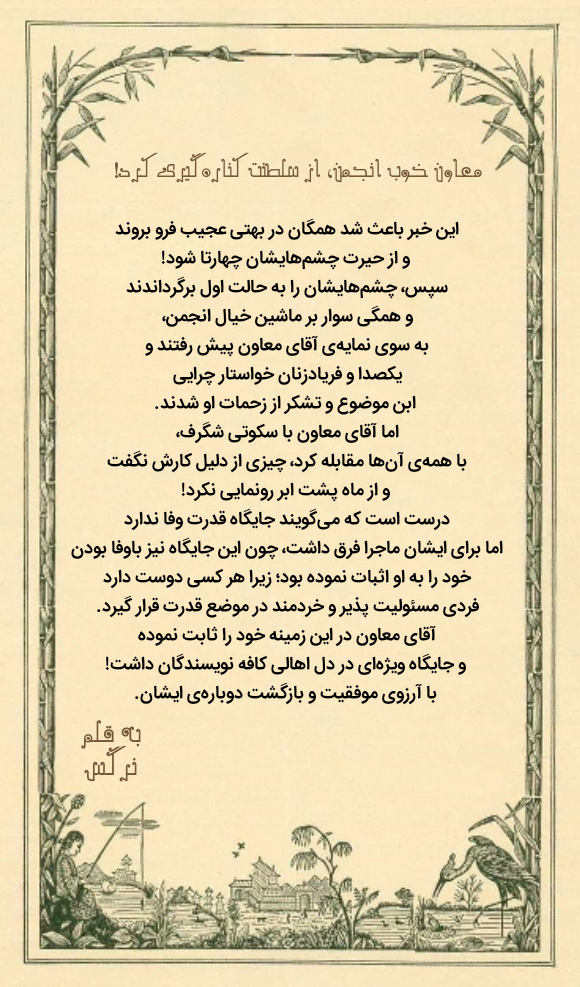 معاون خوب انجمن، از سلطنت کناره‌گیری کرد!
این خبر باعث شد همگان در بهتی عجیب فرو بروند
و از حیرت چشم‌هایشان چهارتا شود!
سپس، چشم‌هایشان را به حالت اول برگرداندند
و همگی سوار بر ماشین خیال انجمن،
به سوی نمایه‌ی آقای معاون پیش رفتند و
یکصدا و فریادزنان خواستار چرایی
ابن موضوع و تشکر از زحمات او شدند.
اما آقای معاون با سکوتی شگرف،
با همه‌ی آن‌ها مقابله کرد، چیزی از دلیل کارش نگفت
و از ماه پشت ابر رونمایی نکرد!
درست است که می‌گویند جایگاه قدرت وفا ندارد
اما برای ایشان ماجرا فرق داشت، چون این جایگاه نیز باوفا بودن
خود را به او اثبات نموده بود؛ زیرا هر کسی دوست دارد
فردی مسئولیت پذیر و خردمند در موضع قدرت قرار گیرد.
آقای معاون در این زمینه خود را ثابت نموده
و جایگاه ویژه‌ای در دل اهالی کافه نویسندگان داشت!
با آرزوی موفقیت و بازگشت دوباره‌ی ایشان.
به قلم
نرگس